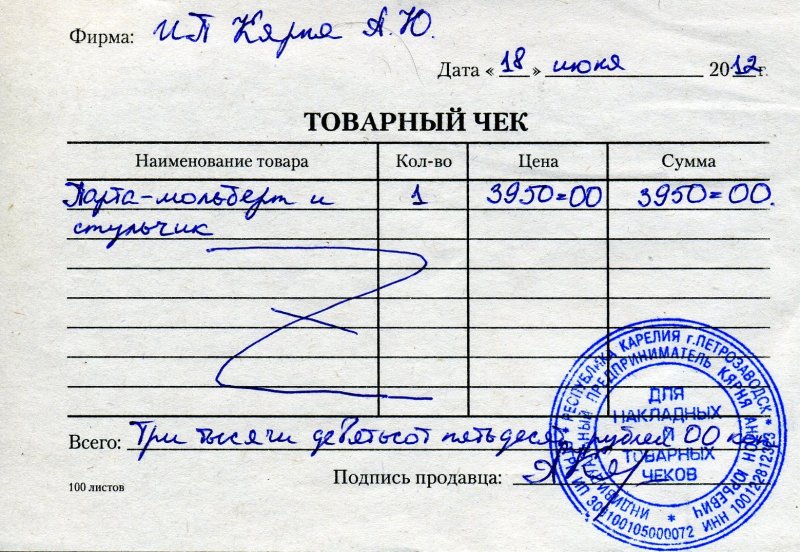 Фирма: ИП Кярня А.Ю.
Дата « 18 » июня 2012 г.
ТОВАРНЫЙ ЧЕК
Наименование товара Кол-во Цена Сумма
Парта-мольберт и 1 3950=00 3950=00.
стульчик
Всего: Три тысячи девятьсот пятьдесят рублей 00 коп
Подпись продавца:
100 листов
РЕСПУБЛИКА КАРЕЛИЯ г.ПЕТРОЗАВОДСК
ИНДИВИДУАЛЬНЫЙ ПРЕДПРИНИМАТЕЛЬ КЯРНЯ АНТОН ЮРЬЕВИЧ
ДЛЯ
НАКЛАДНЫХ
И
ТОВАРНЫХ
ЧЕКОВ